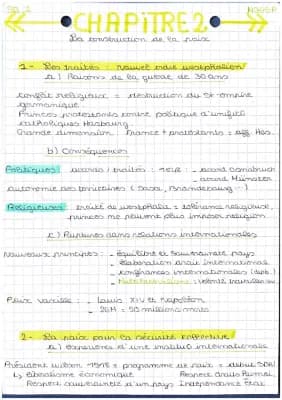 CHAPITRE 2
La construction de la paix
1 - Les traités : nouvel ordre westphalien
a) Raisons de la guerre de 30 ans
Conflit religieux = destruction du St-empire
germanique
Princes protestants contre politique d'unifié
catholiques Habsburg
Grande dimension : France + protestants = aff. Hab.
b) Conséquences
Politiques : accords / traités : 1648 - accord Osnabruck
- accord Münster
autonomie des territoires (Saxe, Brandebourg...)
Religieuses : traité de westphalie = tolérance religieuse,
princes ne peuvent plus imposer religion
c) Ruptures dans relations internationales
Nouveaux principes : - équilibre et souveraineté pays
- élaboration droit international
- conférences internationales
Paix vacille : - Louis XIV et Napoléon
- 2GM = 50 millions morts
2 - La paix pour la sécurité collective
a) expérience d'une institut° internationale
Président wilson 1918 = programme de paix = début SDN
↳ libéralisme économique
Respect souveraineté d'un pays Indépendance État